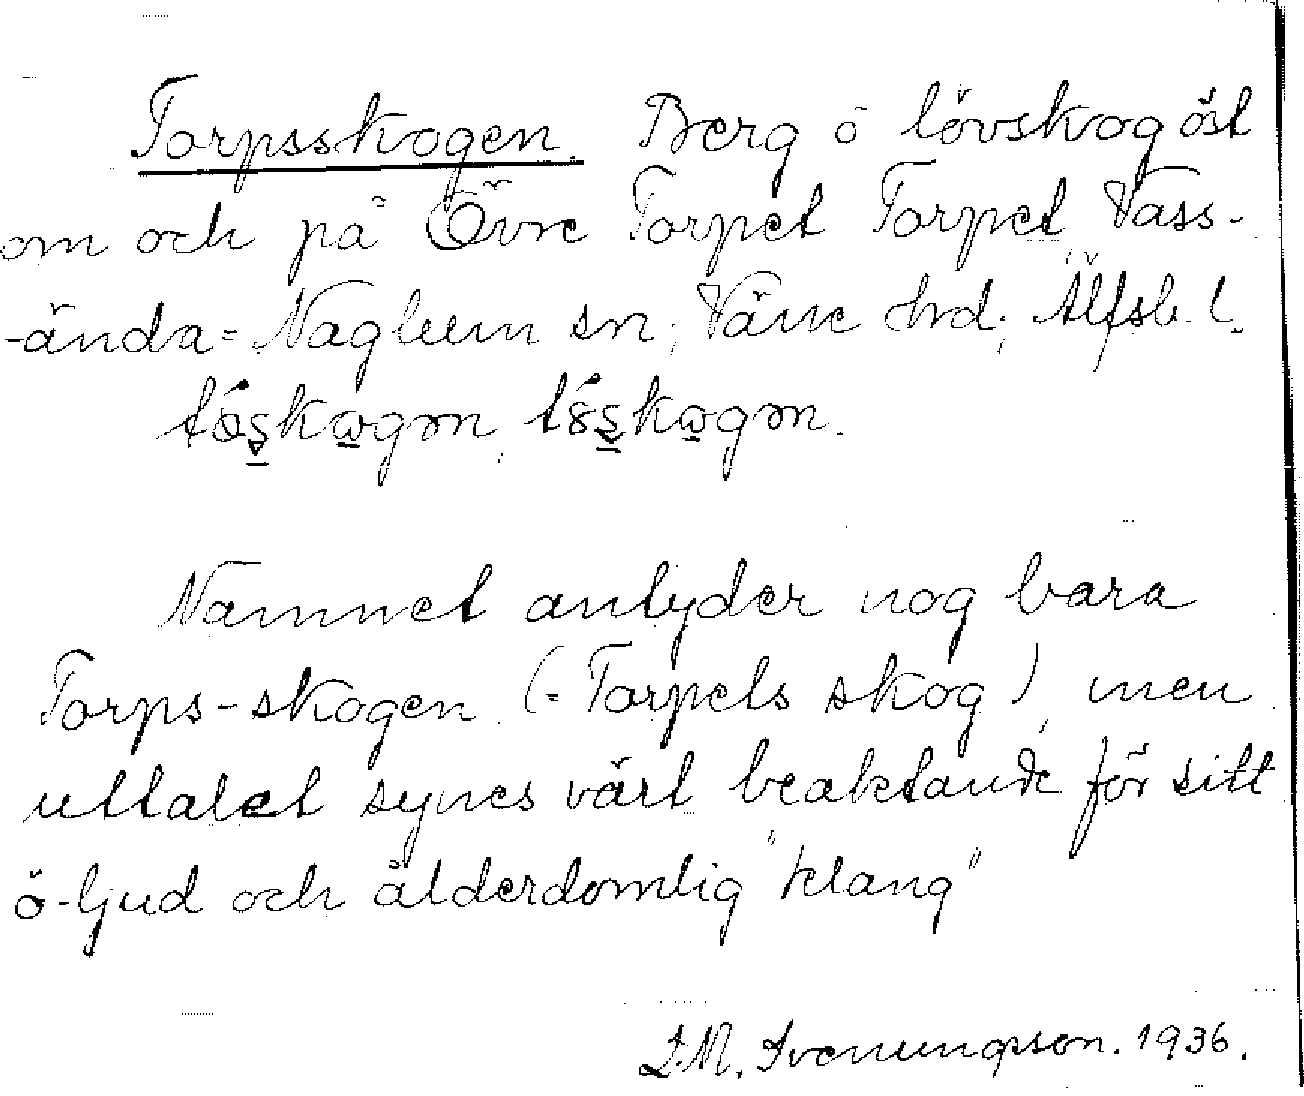 Torpsskogen. Berg o lövskog öst
om och på Övre Torpet Torpet Vass-
-ända=Naglum sn; Väne hd; Älfsb. l.
Namnet antyder nog bara
Torps-skogen (=Torpets skog), men
uttalet synes värt beaktande för sitt
ö-ljud och ålderdomlig "klang"
Svenungsson. 1936.